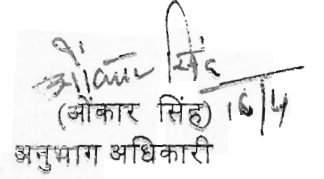 ओंकार सिंह
(ओंकार सिंह) 16/4
अनुभाग अधिकारी